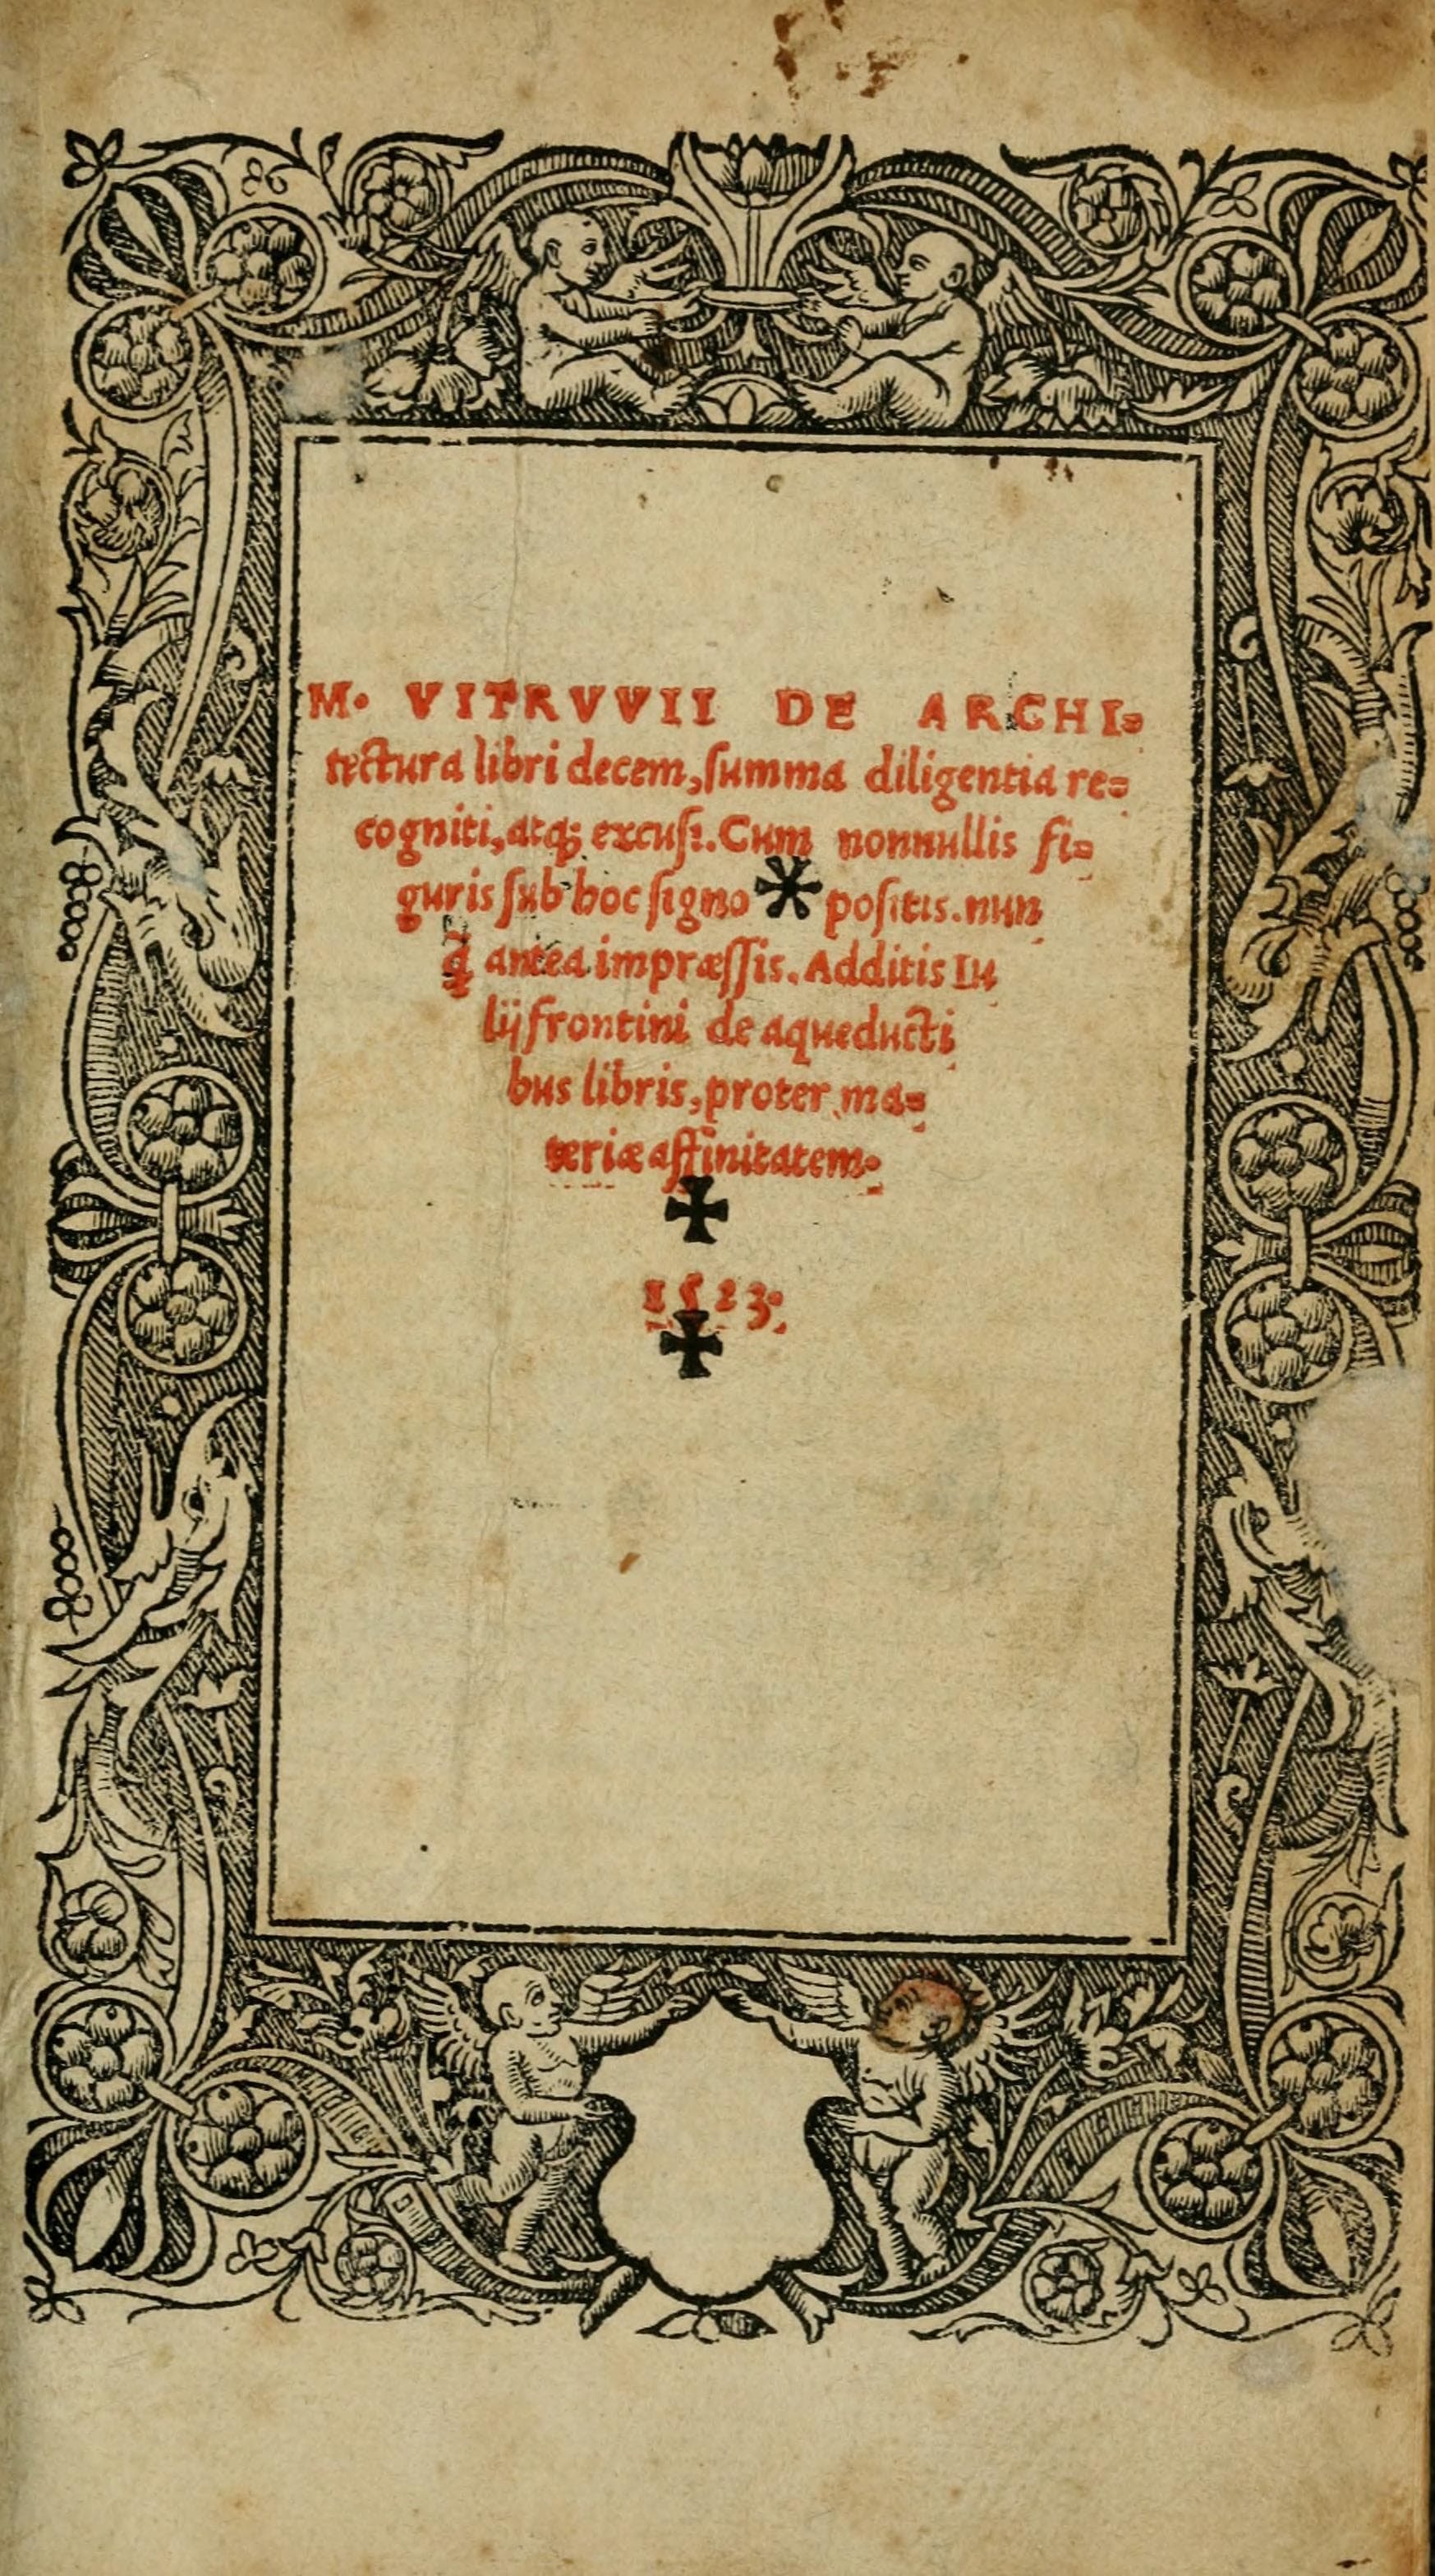 M. VITRVVII DE ARCHI=
tectura libri decem, ſumma diligentia re=
cogniti, atq; excuſi. Cum nonnullis fi=
guris ſub hoc ſigno * poſitis. nun
q̃ antea impræſſis. Additis Iu
lij frontini de aqueducti
bus libris, proter ma=
teriæ affinitatem.
✠
1523.
✠